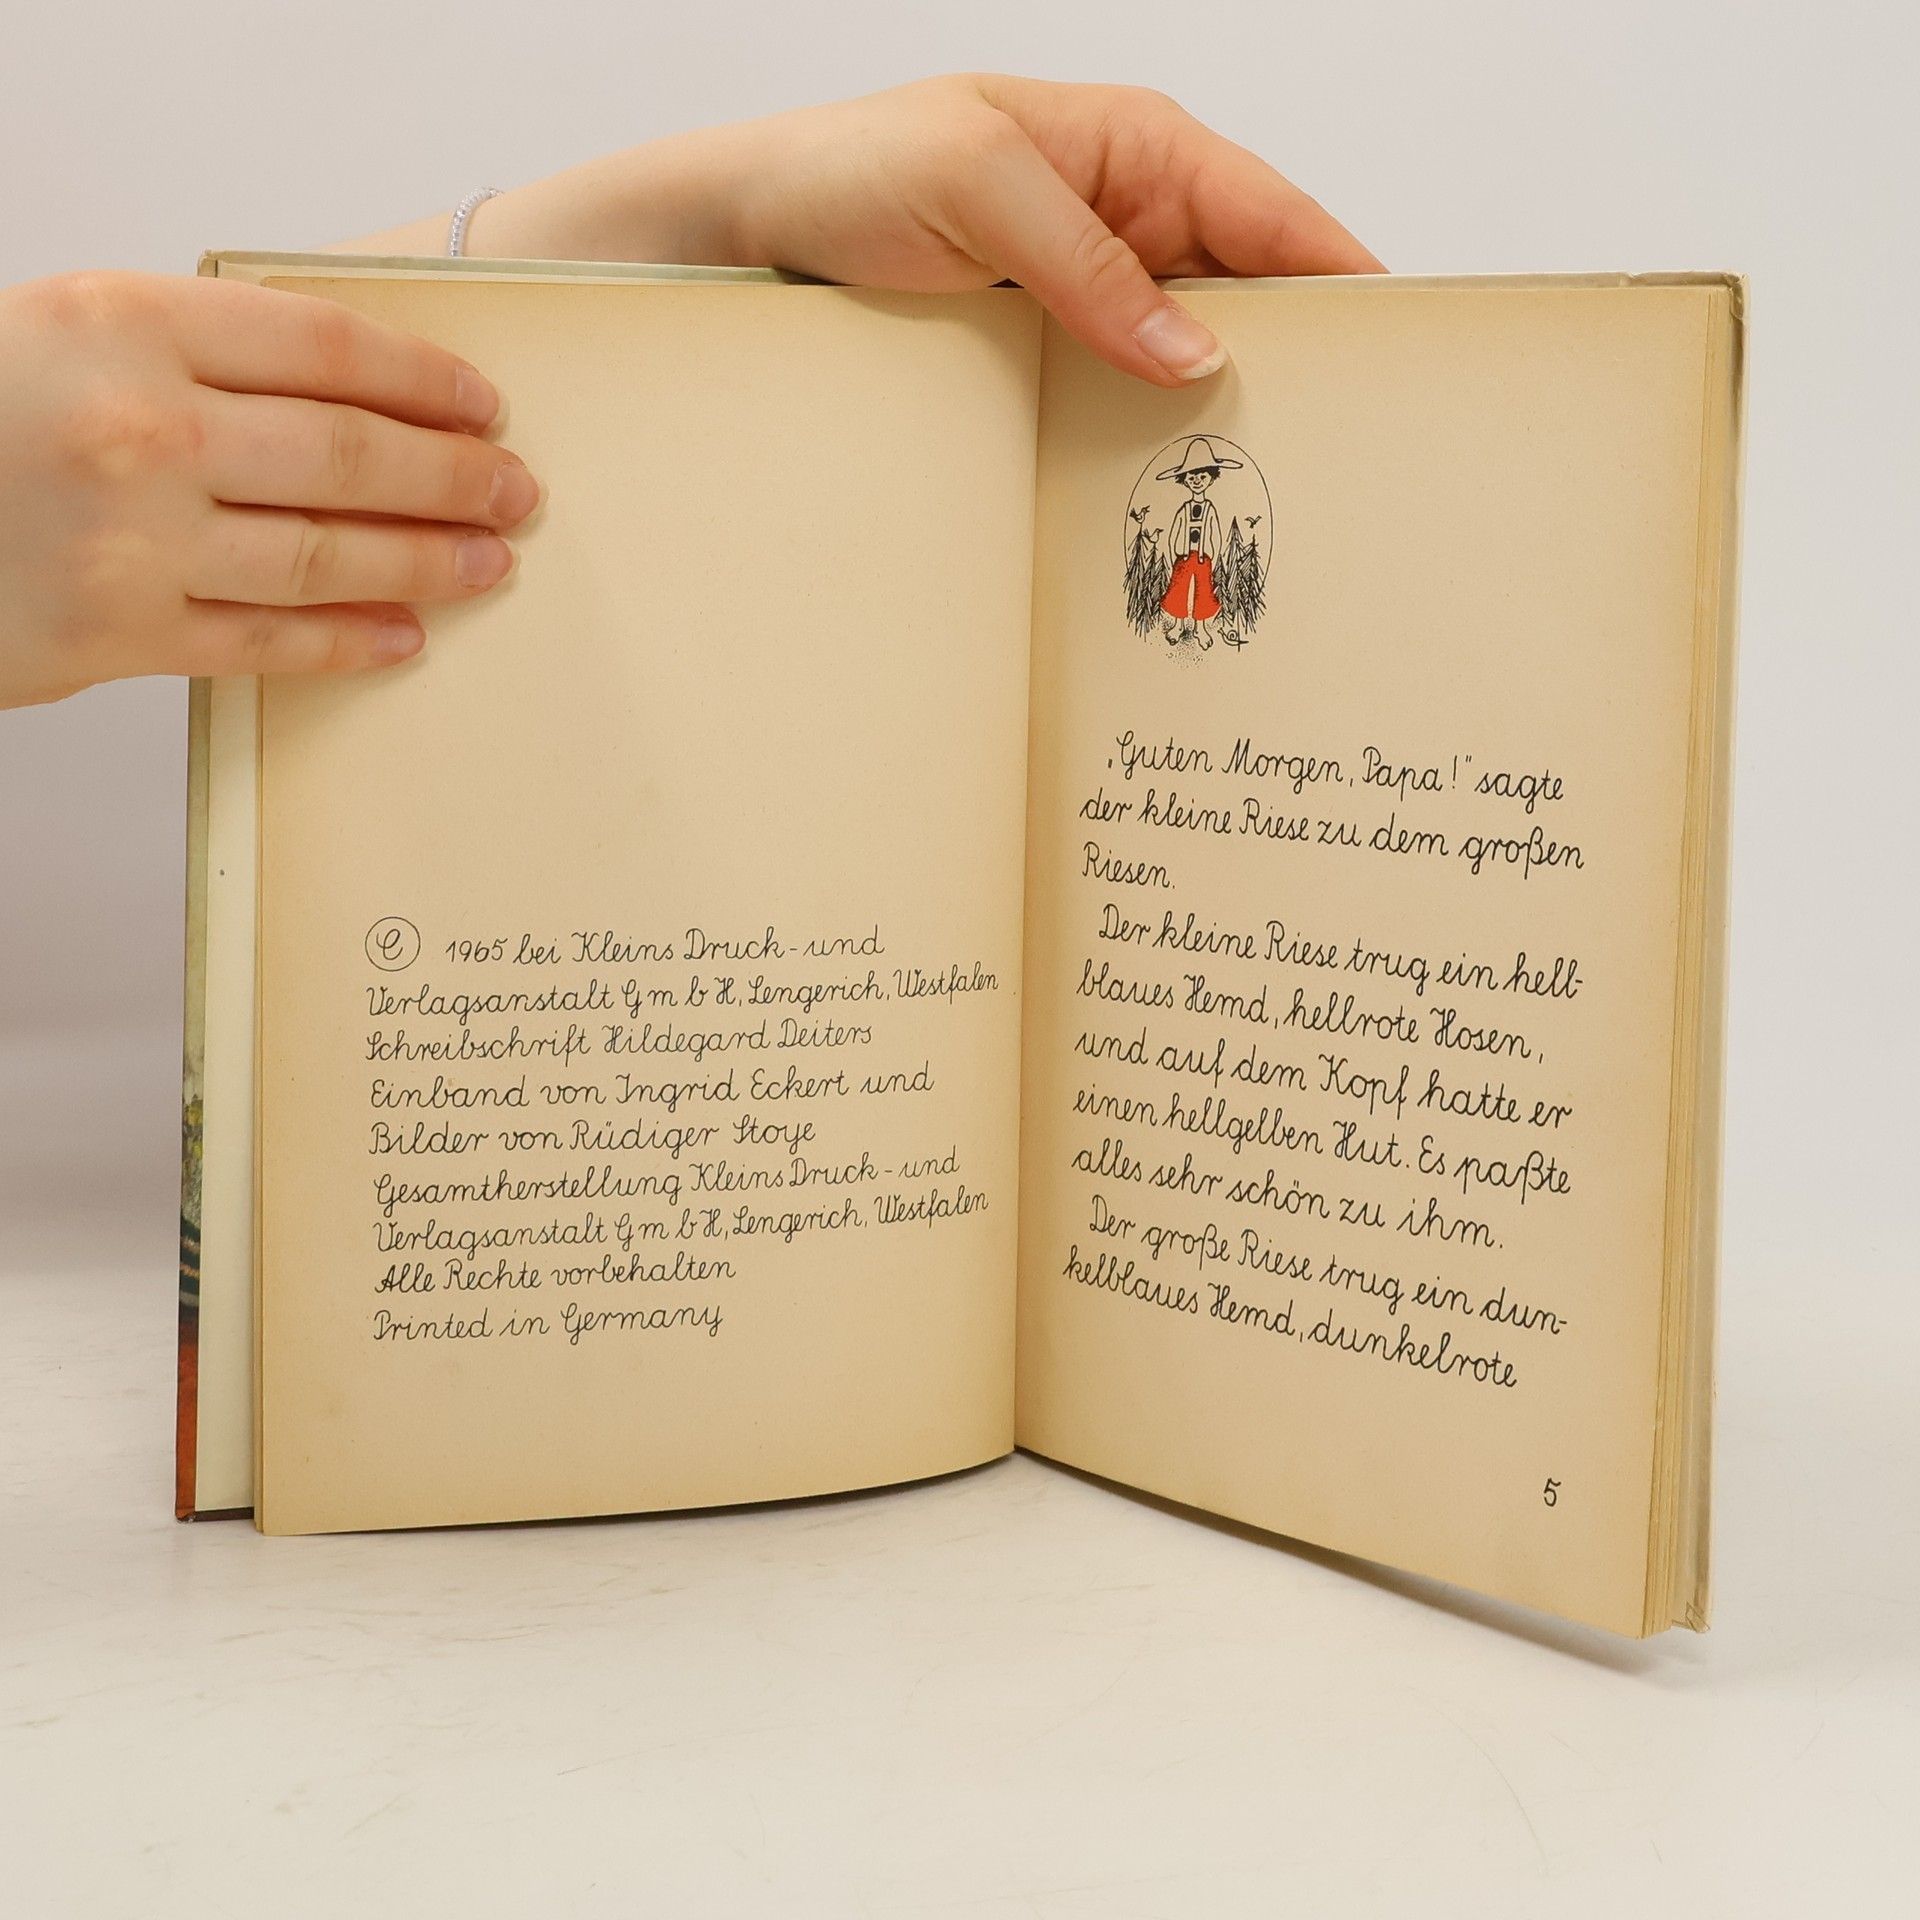 © 1965 bei Kleins Druck- und
Verlagsanstalt GmbH, Lengerich, Westfalen
Schreibschrift Hildegard Deiters
Einband von Ingrid Eckert und
Bilder von Rüdiger Stoye
Gesamtherstellung Kleins Druck- und
Verlagsanstalt GmbH, Lengerich, Westfalen
Alle Rechte vorbehalten
Printed in Germany
„Guten Morgen, Papa!" sagte
der kleine Riese zu dem großen
Riesen.
Der kleine Riese trug ein hell-
blaues Hemd, hellrote Hosen,
und auf dem Kopf hatte er
einen hellgelben Hut. Es paßte
alles sehr schön zu ihm.
Der große Riese trug ein dun-
kelblaues Hemd, dunkelrote
5